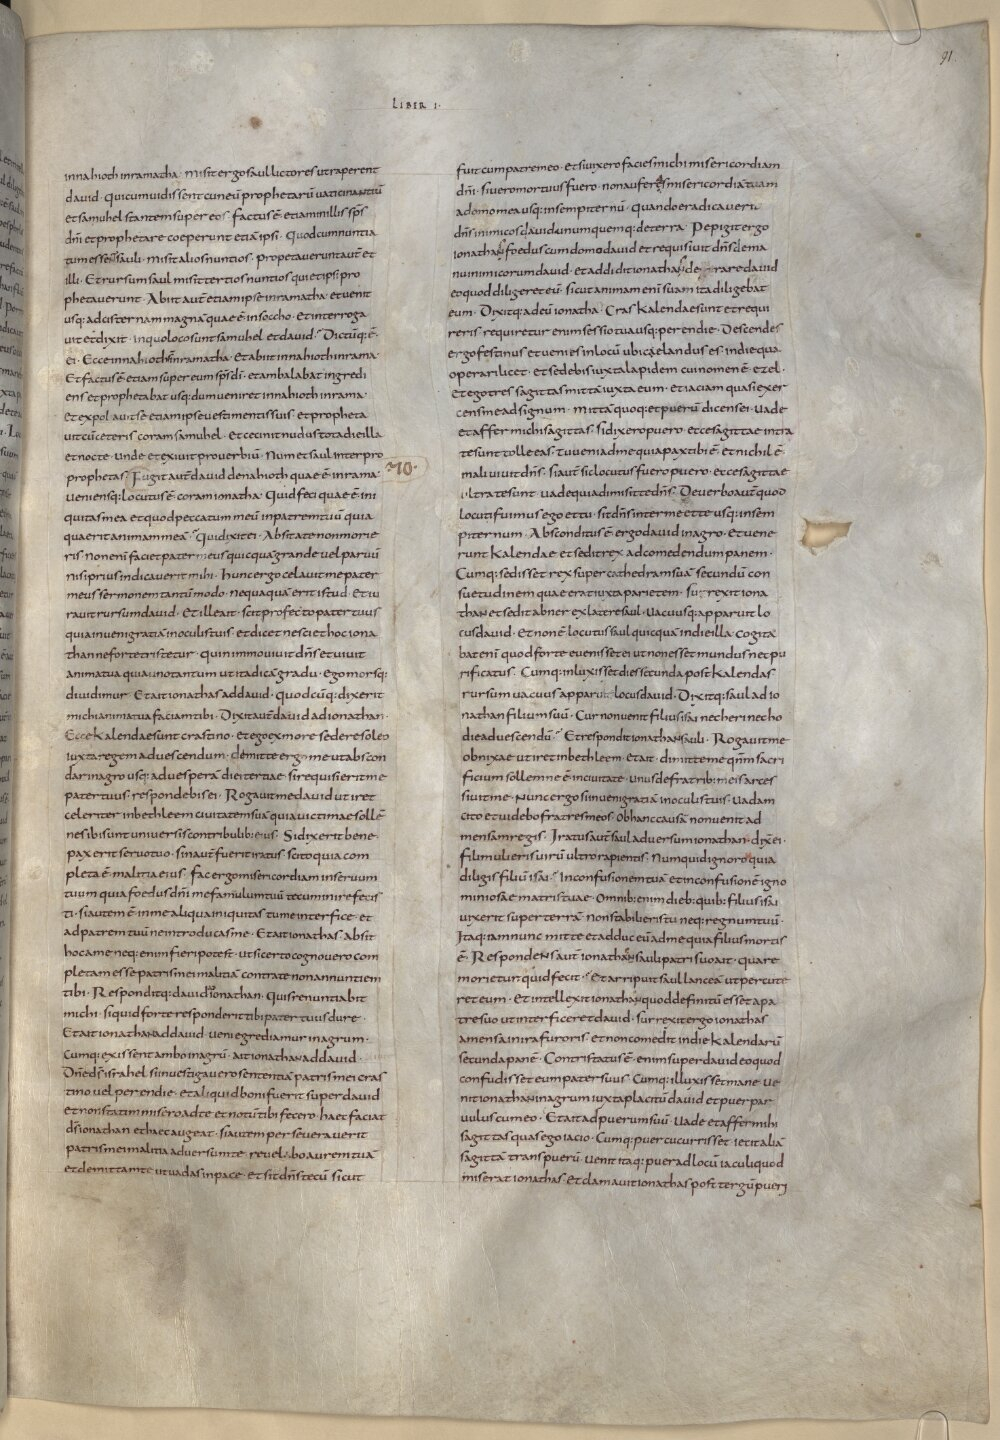 91.
LIBER I.
innahioth inramatha · misit ergo saul lictores ut raperent
david · Quicumvidissent cuneū prophetarū vaticinantiū
et samuhel stantem super eos · factus ē etiam in illis sps̄
dn̄i et prophetare coeperunt etiā ipsi · Quod cum nuntia
tum esset sauli · misit alios nuntios · propetaverunt aut̄ et
illi · Et rursum saul misit tertios nuntios qui et ipsi pro
phetaverunt · Abiit aut̄ etiam ipse inramatha · et venit
usq; ad cisternam magnā quae ē insoccho · et interroga
vit et dixit · inquo loco sunt samuhel et david · Dictūq; ē
ei · Ecce innahioth sn̄ inramatha · Et abiit innahioth inrama
Et factus ē etiam super eum sps̄ dī · et ambalabat ingredi
ens et prophetabat usq; dum veniret innahioth inrama
et expoliavit se etiam ipse vestimentis suis et propheta
vit cū ceteris coram samuhel · et cecinit nudus tota die illa
et nocte · unde et exivit proverbiū · Num et saul inter pro
prophetas · Fugit aut̄ david de nahioth quae ē inrama
veniensq; locutus ē coram ionatha · Quid feci quae ē ini
quitas mea et quod peccatum meū inpatrem tuū quia
quaerit animam meā · Qui dixit ei · Absit a te non morie
ris · Non enī faciet pater meus quicquā grande vel parvū
nisi prius indicaverit mihi · hunc ergo celavit me pater
meus sermonem tantū modo · nequaquā erit istud · Et iu
ravit rursum david · Et ille ait · scit profecto pater tuus
quia inveni gratiā inoculis tuis · et dicet nesciet hoc iona
than ne forte tristetur · quin immo vivit dn̄s et vivit
anima tua quia uno tantum ut ita dicā gradu · Ego morsq;
dividimur · Et ait ionathas ad david · quodcūq; dixerit
michi anima tua faciam tibi · Dixit aut̄ david ad ionathan ·
Ecce Kalendae sunt crastino · et ego ex more sedere soleo
iuxta regem ad vescendum · demitte ergo me ut abscon
dar inagro usq; ad vesperā diei tertiae · si requisierit me
pater tuus · respondebis ei · Rogavit me david ut iret
celeriter inbethleem civitatem suā quia victimae sollē
nes ibi sunt universis contribulib; eius · Si dixerit bene
pax erit servo tuo · sin aut̄ fuerit iratus · scito quia com
pleta ē malitia eius · fac ergo misericordiam in servum
tuum quia foedus dn̄i me famulum tuū tecum inire fecis
ti · si autem ē inme aliqua iniquitas tu me interfice · et
ad patrem tuū ne introducas me · Et ait ionathas · Absit
hoc a me neq; enim fieri potest · ut si certo cognovero com
pletam esse patris mei malitiā contra te non annuntiem
tibi · Responditq; david ad ionathan · Quis renuntiabit
michi · si quid forte responderit tibi pater tuus dure ·
Et ait ionathan ad david · veni egrediamur inagrum ·
Cumq; exissent ambo inagrū · ait ionathan ad david ·
Dn̄e ds̄ israhel si investigavero sententiā patris mei cras
tino vel per endie · et aliquid boni fuerit super david
et non statim misero ad te et notū tibi fecero · haec faciat
ds̄ ionathan et haec augeat · si autem perseveraverit
patris mei malitia adversum te · revelabo aurem tuā
et demittam te ut vadas inpace · et sit dn̄s tecū sicut
·70·
fuit cum patre meo · et si vixero facies michi misericordiam
dn̄i · si vero mortuus fuero · non auferes misericordiā tuam
a domo mea usq; insempiternū · Quando eradicaverit
dn̄s inimicos david unumquemq; de terra · Pepigit ergo
ionathan foedus cum domo david et requisivit dn̄s de ma
nu inimicorum david · et addidit ionathan deierare david
eo quod diligeret eū · sicut animam enī suam ita diligebat
eum · Dixitq; ad eū ionatha · Cras Kalendae sunt et requi
reris · requiretur enim sessio tua usq; perendie · Descendes
ergo festinus et venies inlocū ubi caelandus es · indie qua
operari licet · et sedebis iuxta lapidem cui nomen ē · ezel ·
Et ego tres sagittas mittā iuxta eum · et iaciam quasi exer
cens me ad signum · Mittā quoq; et puerū dicens ei · Vade
et affer michi sagittas · si dixero puero · ecce sagittae intra
te sunt tolle eas · tu veni ad me quia pax tibi ē · et nichil ē
mali vivit dn̄s · si aut̄ sic locutus fuero puero · ecce sagittae
ultra te sunt · vade quia dimisit te dn̄s · De verbo aut̄ quod
locuti fuimus ego et tu · sit dn̄s inter me et te usq; insem
piternum · Absconditus ē ergo david inagro · Et vene
runt Kalendae et sedit rex ad comedendum panem ·
Cumq; sedisset rex super cathedram suā secundū con
suetudinem quae erat iuxta parietem · surrexit iona
than et sedit abner ex latere saul · vacuusq; apparuit lo
cus david · Et non ē locutus saul quicquā indie illa · cogita
bat enī quod forte evenisset ei ut non esset mundus nec pu
rificatus · Cumq; inluxisset dies secunda post Kalendas
rursum vacuus apparuit locus david · Dixitq; saul ad io
nathan filium suū · Cur non venit filius isai nec heri nec ho
die ad vescendū · Et respondit ionathan sauli · Rogavit me
obnixae ut iret inbethleem · et ait · dimitte me qn̄m sacri
ficium sollemne ē incivitate · unus de fratrib; meis arces
sivit me · Nunc ergo si inveni gratiā inoculis tuis · vadam
cito et videbo fratres meos · Ob hanc causā non venit ad
mensam regis · Iratus aut̄ saul adversum ionathan · dix̄ ei ·
fili mulieris virū ultro rapientis · Numquid ignoro quia
diligis filiū isai · Inconfusionem tuā et inconfusionē igno
miniosae matris tuae · Omnib; enim dieb; quib; filius isai
vixerit super terrā · non stabilieris tu neq; regnum tuū ·
Itaq; iam nunc mitte et adduc eū ad me quia filius mortis
ē · Respondens aut̄ ionathan sauli patri suo ait · quare
morietur quid fecit · Et arripuit saul lanceā ut percute
ret eum · Et intellexit ionathan quod definitū esset a pa
tre suo ut interficeret david · surrexit ergo ionathas
a mensa inira furoris · et non comedit indie Kalendarū
secunda panē · Contristatus ē enim super david eo quod
confudisset eum pater suus · Cumq; illuxisset mane · ve
nit ionathan inagrum iuxta placitū david et puer par
vulus cum eo · Et ait ad puerum suū · Vade et affer mihi
sagittas quas ego iacio · Cumq; puer cucurrisset · iecit aliā
sagittā trans puerū · Venit itaq; puer ad locū iaculi quod
miserat ionathas · et clamavit ionathas post tergū pueri